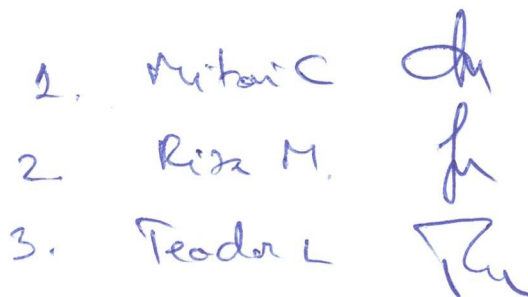 1. Mihai C
2 Riza M.
3. Teodor L